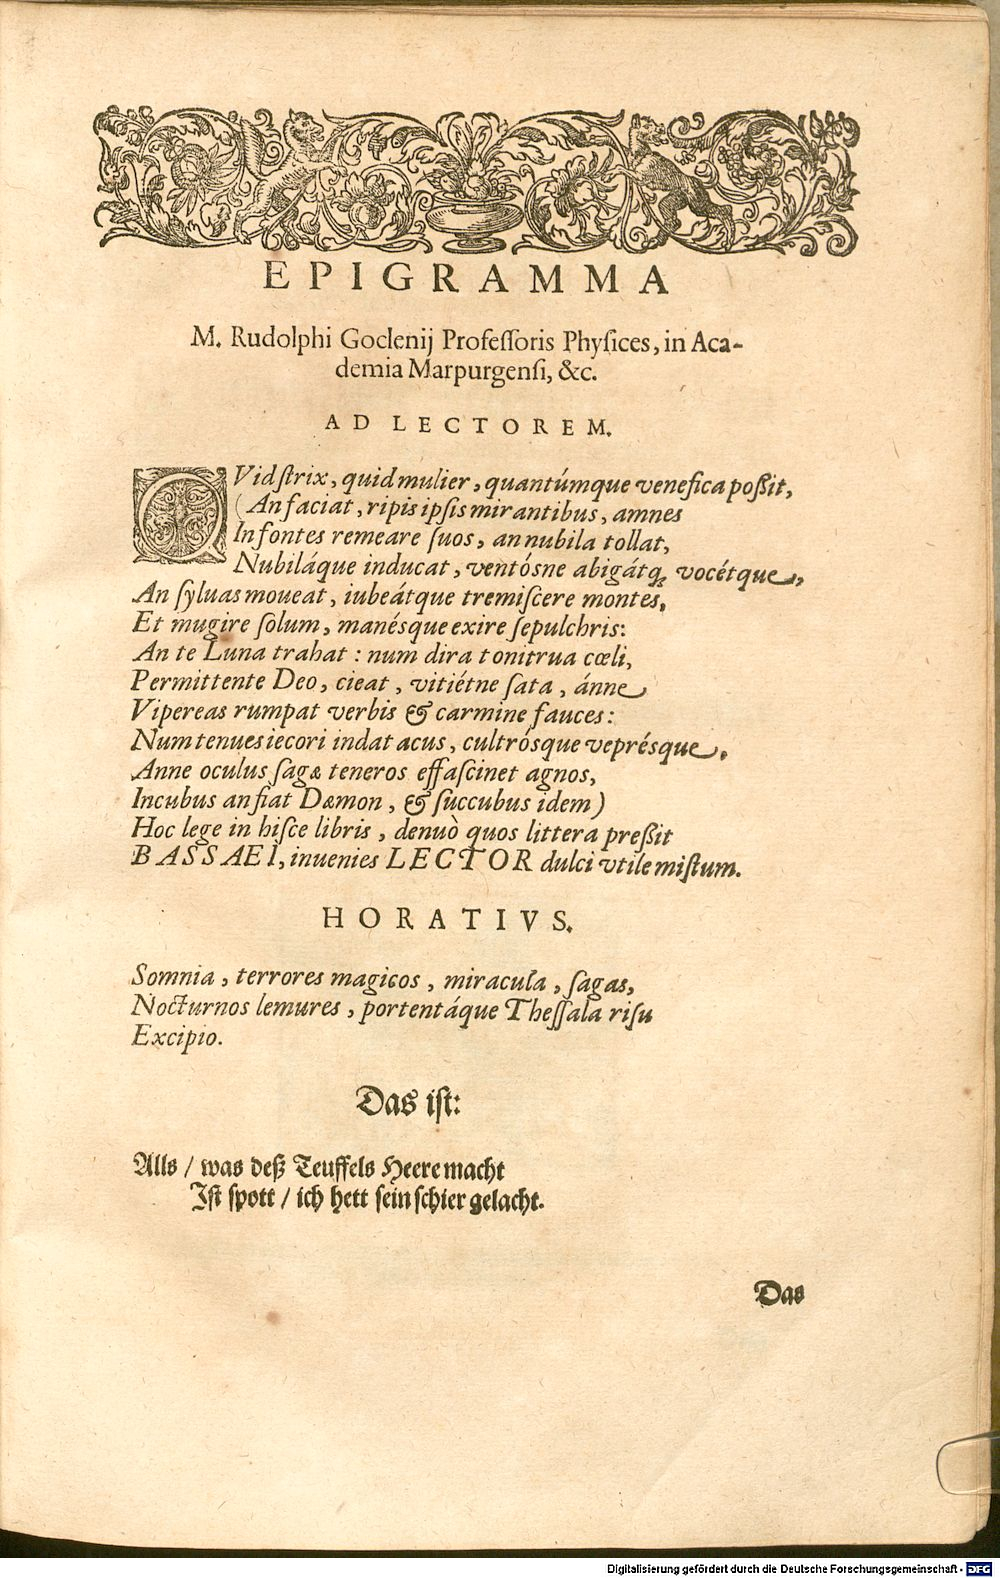 EPIGRAMMA
M. Rudolphi Goclenij Profeſſoris Phyſices, in Aca-
demia Marpurgenſi, &c.
AD LECTOREM.
QVid ſtrix, quid mulier, quantúmque venefica poßit,
(An faciat, ripis ipſis mirantibus, amnes
In fontes remeare ſuos, an nubila tollat,
Nubiláque inducat, ventósne abigátq; vocétque,
An ſyluas moueat, iubeátque tremiſcere montes,
Et mugire ſolum, manésque exire ſepulchris:
An te Luna trahat: num dira tonitrua cœli,
Permittente Deo, cieat, vitiétne ſata, ánne
Vipereas rumpat verbis & carmine fauces:
Num tenues iecori indat acus, cultrósque veprésque,
Anne oculus ſagæ teneros effaſcinet agnos,
Incubus an fiat Dæmon, & ſuccubus idem)
Hoc lege in hiſce libris, denuò quos littera preßit
BASSAEI, inuenies LECTOR dulci vtile miſtum.
HORATIVS.
Somnia, terrores magicos, miracula, ſagas,
Nocturnos lemures, portentáque Theſſala riſu
Excipio.
Das iſt:
Alls / was deß Teuffels Heere macht
Iſt ſpott / ich hett ſein ſchier gelacht.
Das
Digitalisierung gefördert durch die Deutsche Forschungsgemeinschaft - DFG